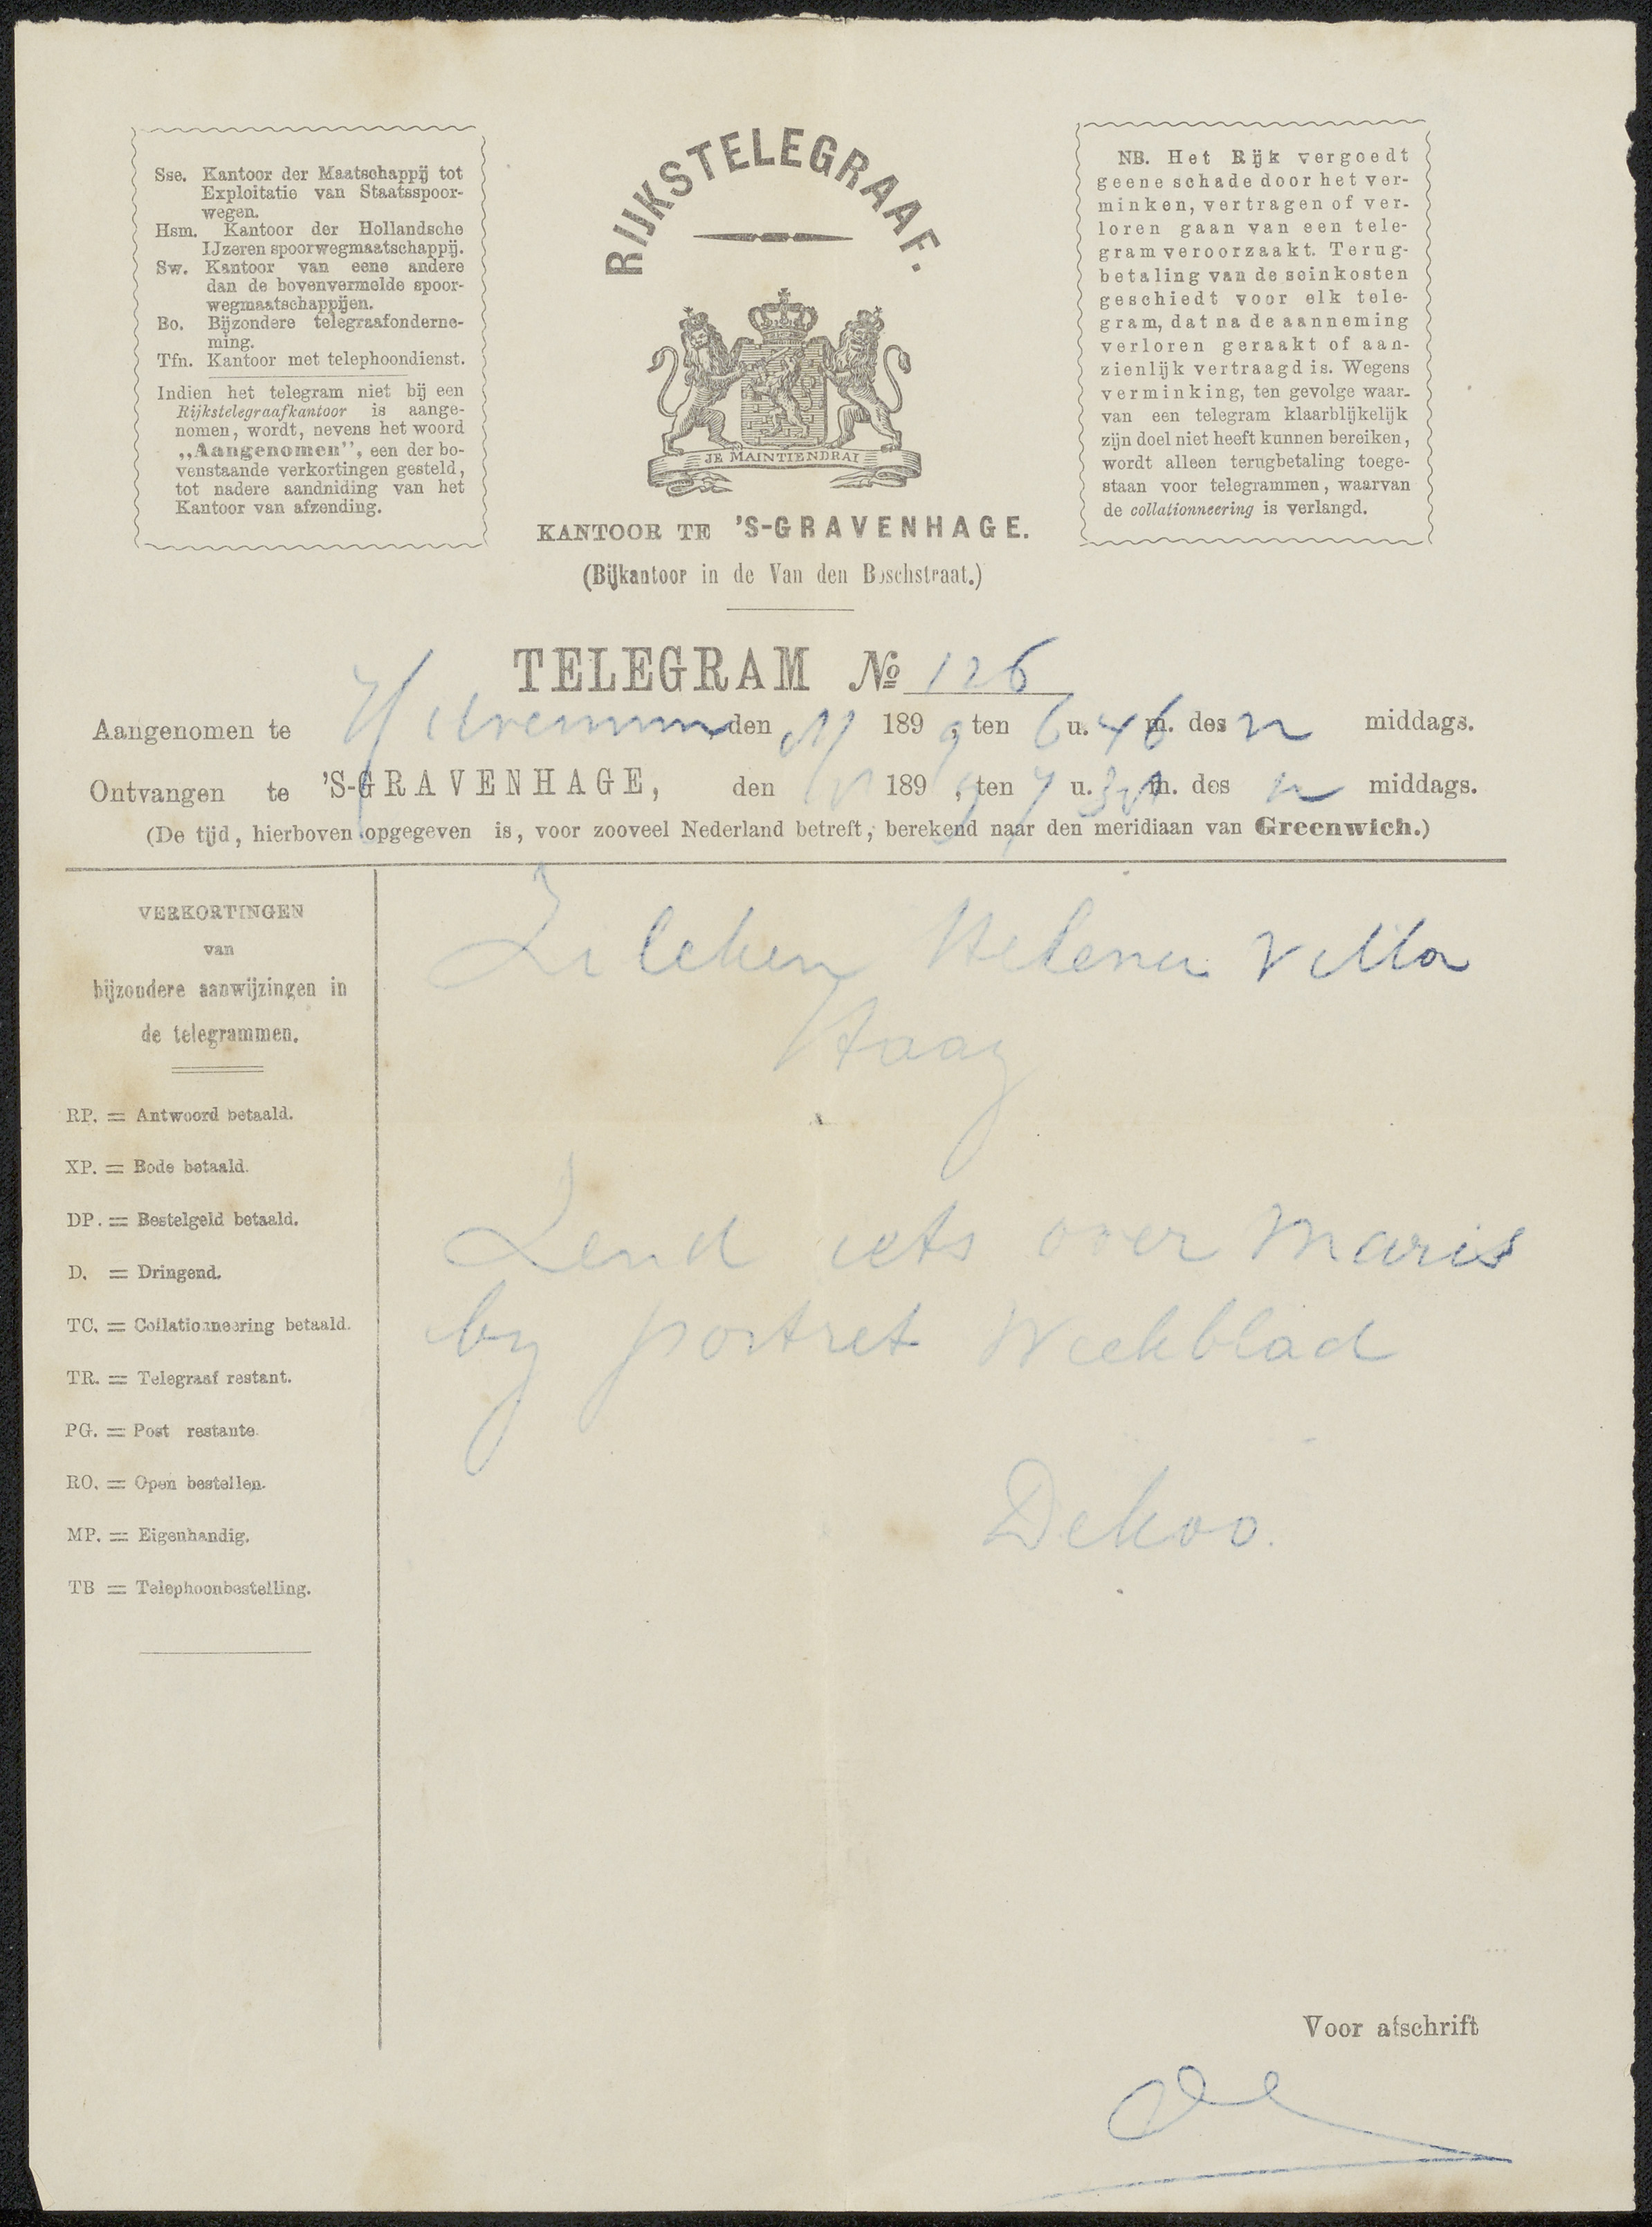 Sse. Kantoor der Maatschappij tot
Exploitatie van Staatsspoor-
wegen.
Hsm. Kantoor der Hollandsche
IJzeren spoorwegmaatschappij.
Sw. Kantoor van eene andere
dan de bovenvermelde spoor-
wegmaatschappijen.
Bo. Bijzondere telegraafonderne-
ming.
Tfn. Kantoor met telephoondienst.
Indien het telegram niet bij een
Rijkstelegraafkantoor is aange-
nomen, wordt, nevens het woord
„Aangenomen”, een der bo-
venstaande verkortingen gesteld,
tot nadere aandniding van het
Kantoor van afzending.
RIJKSTELEGRAAF.
JE MAINTIENDRAI
KANTOOR TE 'S-GRAVENHAGE.
(Bijkantoor in de Van den Boschstraat.)
NB. Het Rijk vergoedt
geene schade door het ver-
minken, vertragen of ver-
loren gaan van een tele-
gram veroorzaakt. Terug-
betaling van de seinkosten
geschiedt voor elk tele-
gram, dat na de aanneming
verloren geraakt of aan-
zienlijk vertraagd is. Wegens
verminking, ten gevolge waar-
van een telegram klaarblijkelijk
zijn doel niet heeft kunnen bereiken,
wordt alleen terugbetaling toege-
staan voor telegrammen, waarvan
de collationneering is verlangd.
TELEGRAM No 126
Aangenomen te Hilversum den 189 9, ten 6 u. 46 m. des n middags.
Ontvangen te 'S-GRAVENHAGE, den 189 9, ten 7 u. m. des n middags.
(De tijd, hierboven opgegeven is, voor zooveel Nederland betreft, berekend naar den meridiaan van Greenwich.)
VERKORTINGEN
van
bijzondere aanwijzingen in
de telegrammen.
RP. = Antwoord betaald.
XP. = Bode betaald.
DP. = Bestelgeld betaald.
D. = Dringend.
TC. = Collationneering betaald.
TR. = Telegraaf restant.
PG. = Post restante.
RO. = Open bestellen.
MP. = Eigenhandig.
TB = Telephoonbestelling.
Zilcken Helena Villa
Haag
Zend iets over Maris
by portret Weekblad
Dekoo.
Voor afschrift